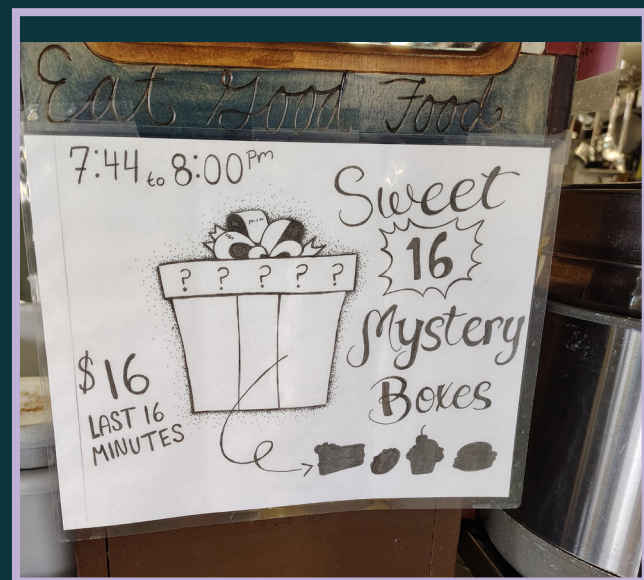 Eat Good Food
7:44 to 8:00pm
Sweet
16
Mystery
Boxes
? ? ? ? ?
$16
LAST 16
MINUTES